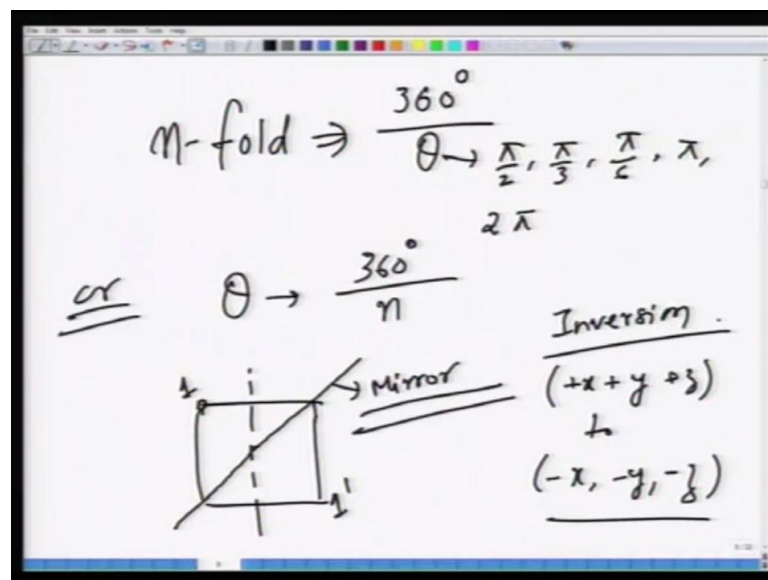 File Edit View Insert Actions Tools Help
n-fold ⇒ 360° / θ → π/2, π/3, π/6, π,
2π
or θ → 360° / n
Inversion.
(+x +y +z)
to
(-x, -y, -z)
1 → Mirror
1'